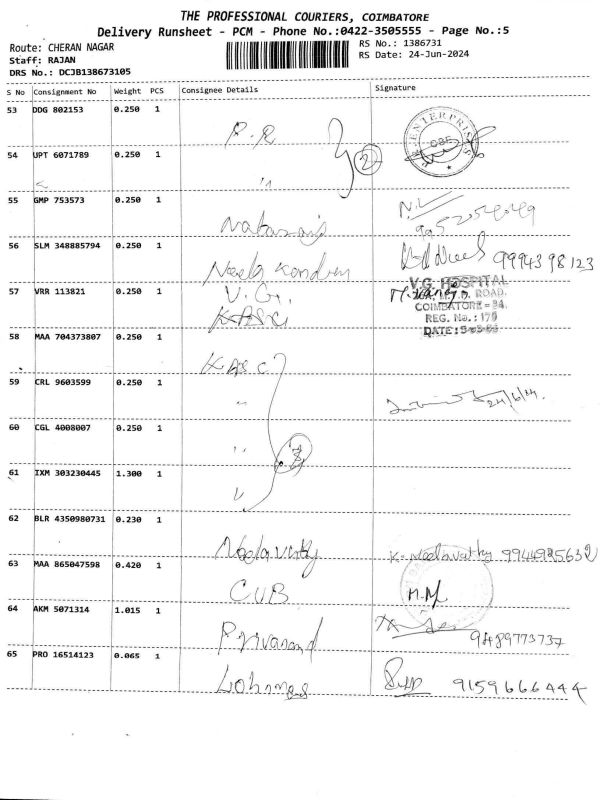 THE PROFESSIONAL COURIERS, COIMBATORE
Delivery Runsheet - PCM - Phone No.:0422-3505555 - Page No.:5
Route: CHERAN NAGAR
RS No.: 1386731
Staff: RAJAN
RS Date: 24-Jun-2024
DRS No.: DCJB138673105
S No Consignment No Weight PCS Consignee Details Signature
53 DDG 802153 0.250 1
P.R
ENTERPRISES
CBE
54 UPT 6071789 0.250 1
"
2
55 GMP 753573 0.250 1
N.L
56 SLM 348885794 0.250 1
Neela Kandan
9994398123
57 VRR 113821 0.250 1
V.G.
KASC
V.G. HOSPITAL
M.T.P. ROAD,
COIMBATORE - 34.
REG. No.: 179
DATE:
58 MAA 704373807 0.250 1
KASC
59 CRL 9603599 0.250 1
"
24/6/24.
60 CGL 4008007 0.250 1
"
61 IXM 303230445 1.300 1
"
62 BLR 4350980731 0.230 1
Neelavathy
K. Neelavathy 9944925632
63 MAA 865047598 0.420 1
CUB
M.M
64 AKM 5071314 1.015 1
9489773737
65 PRO 16514123 0.065 1
9159666444